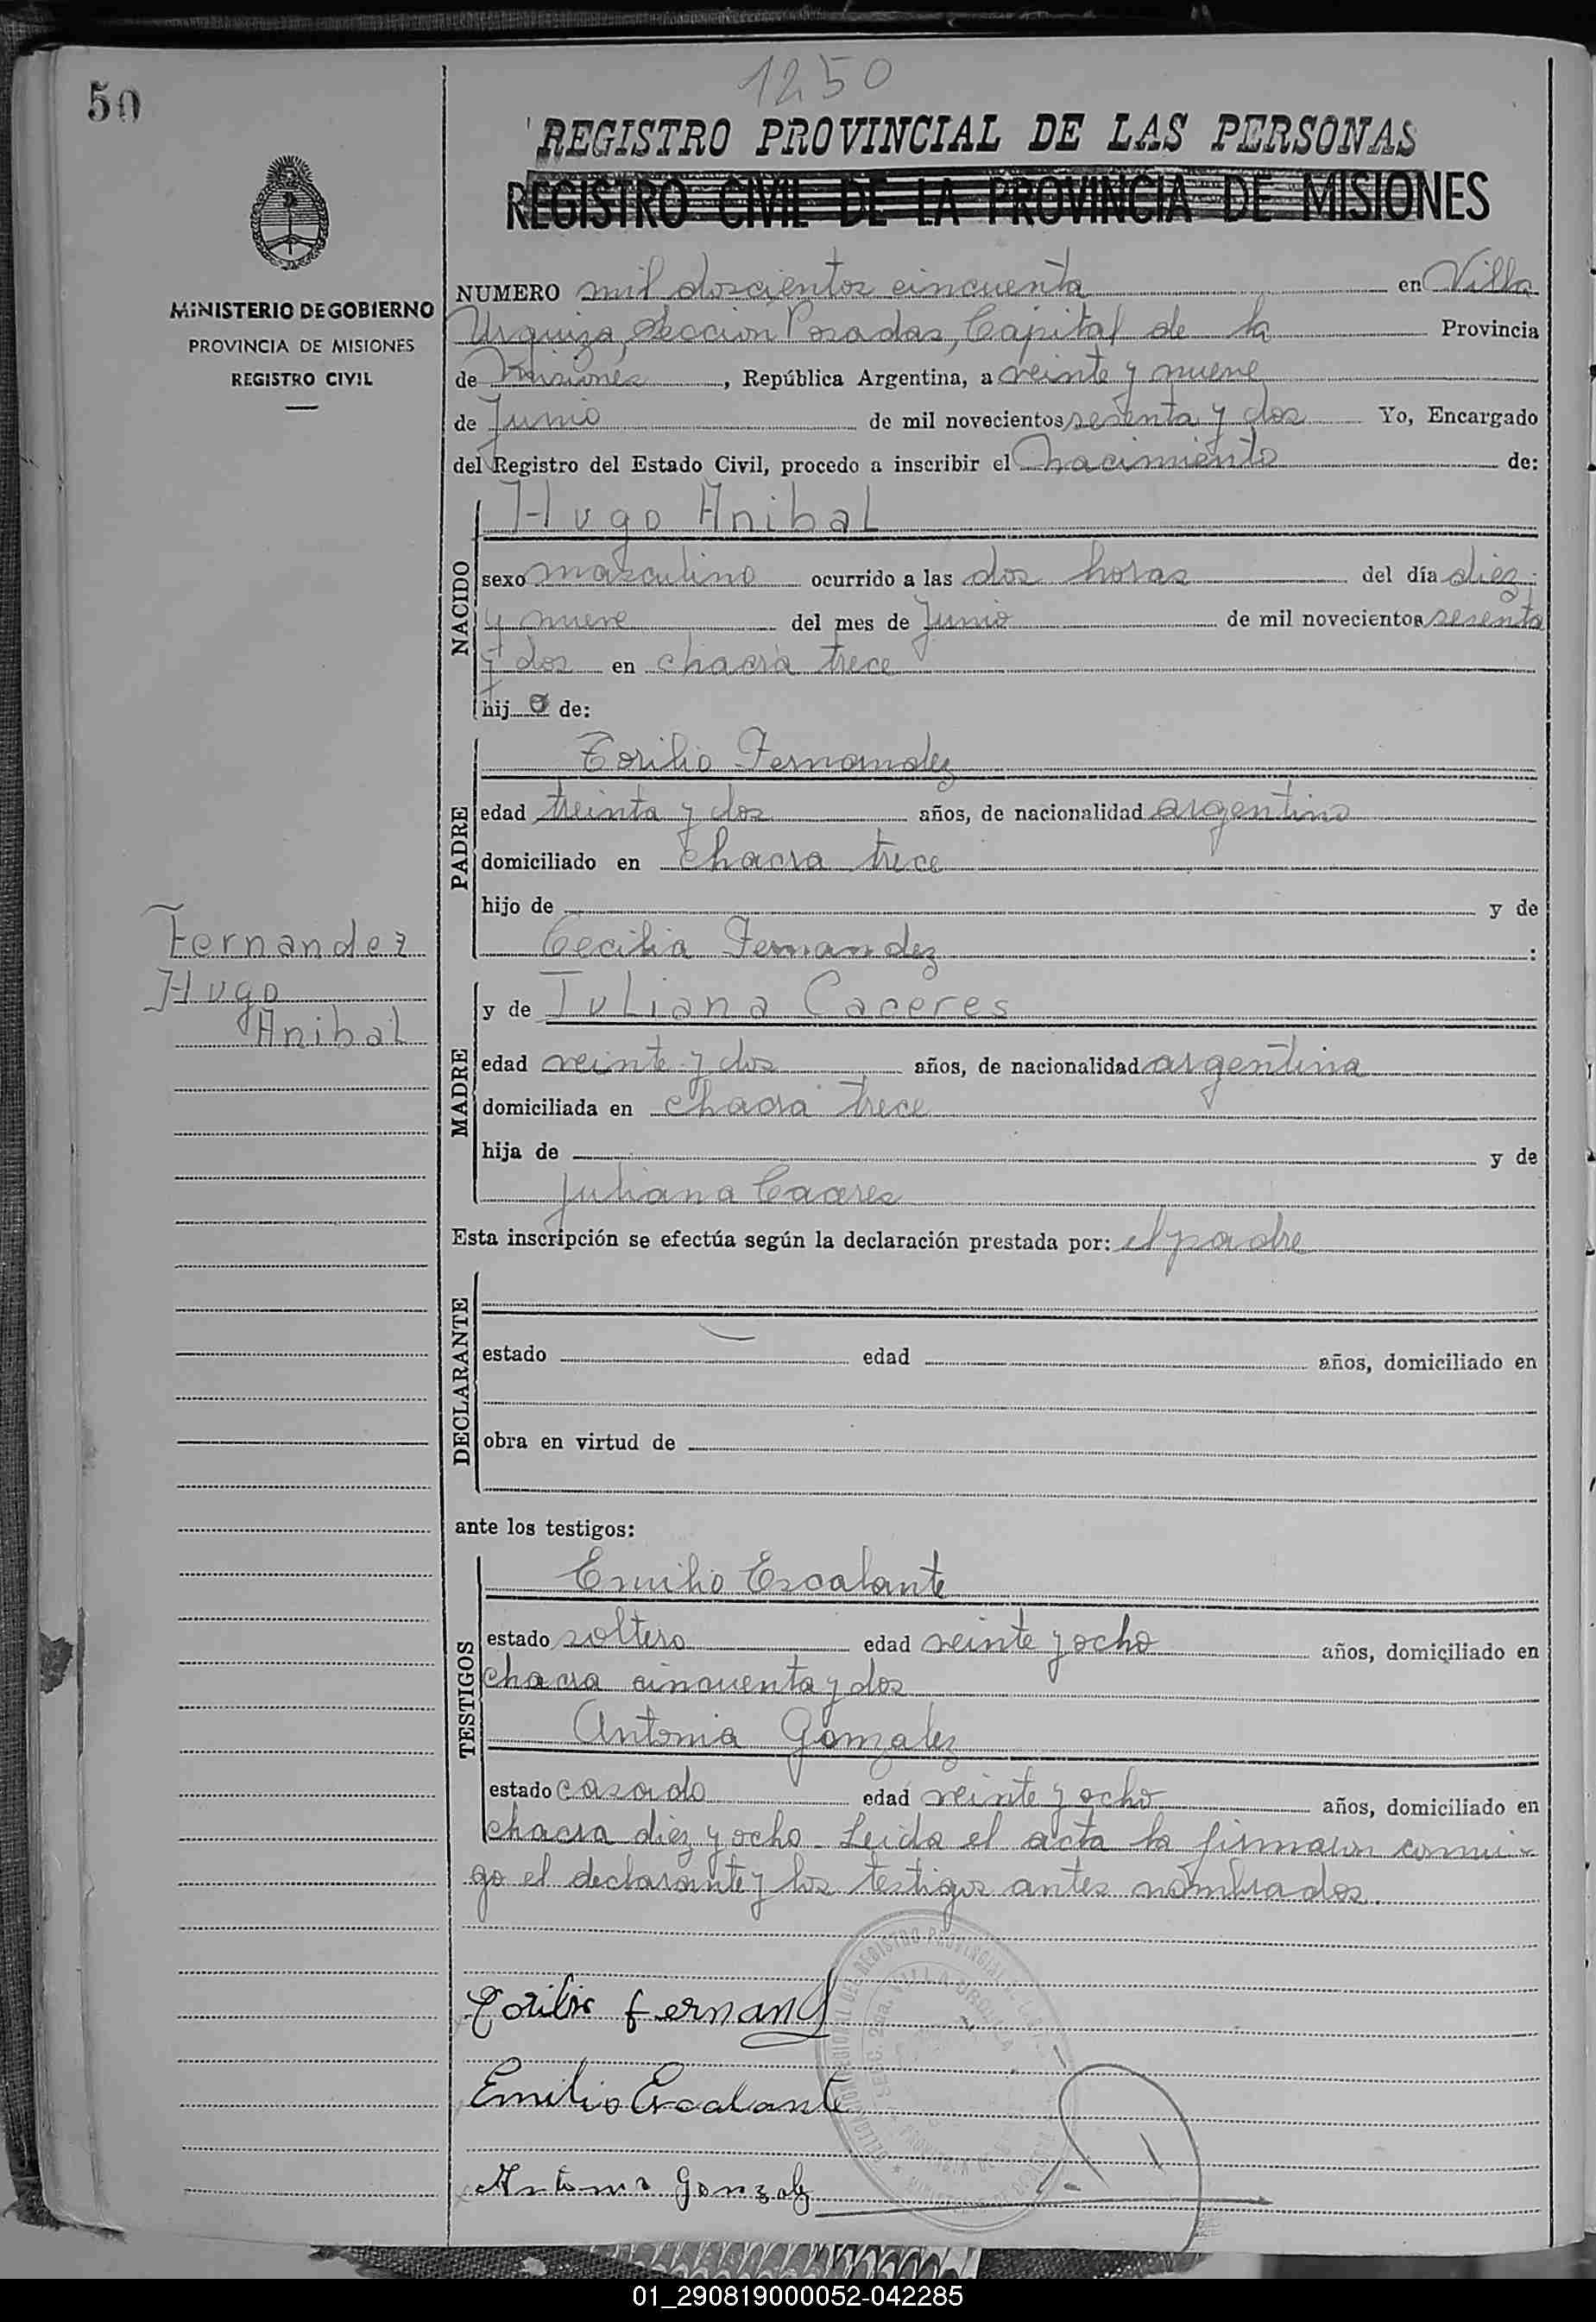 50
1250
REGISTRO PROVINCIAL DE LAS PERSONAS
REGISTRO CIVIL DE LA PROVINCIA DE MISIONES
MINISTERIO DE GOBIERNO
PROVINCIA DE MISIONES
REGISTRO CIVIL
NUMERO mil doscientos cincuenta en Villa
Urquiza, Seccion Posadas, Capital de la Provincia
de Misiones, República Argentina, a veinte y nueve
de Junio de mil novecientos sesenta y dos Yo, Encargado
del Registro del Estado Civil, procedo a inscribir el nacimiento de:
NACIDO
Hugo Anibal
sexo masculino ocurrido a las dos horas del día diez
y nueve del mes de Junio de mil novecientos sesenta
y dos en chacra trece
hijo de:
PADRE
Torilio Fernandez
edad treinta y dos años, de nacionalidad argentino
domiciliado en chacra trece
hijo de y de
Cecilia Fernandez :
Fernandez
Hugo
Anibal
MADRE
y de Juliana Caceres
edad veinte y dos años, de nacionalidad argentina
domiciliada en chacra trece
hija de y de
Juliana Caceres
Esta inscripción se efectúa según la declaración prestada por: el padre
DECLARANTE
estado edad años, domiciliado en
obra en virtud de
ante los testigos:
TESTIGOS
Emilio Escalante
estado soltero edad veinte y ocho años, domiciliado en
chacra cincuenta y dos
Antonia Gonzalez
estado casado edad veinte y ocho años, domiciliado en
chacra diez y ocho - Leida el acta la firmaron conmi-
go el declarante y los testigos antes nombrados.
Torilio Fernand
Emilio Escalante
Antonia Gonzalez
VILLA URQUIZA
01_290819000052-042285